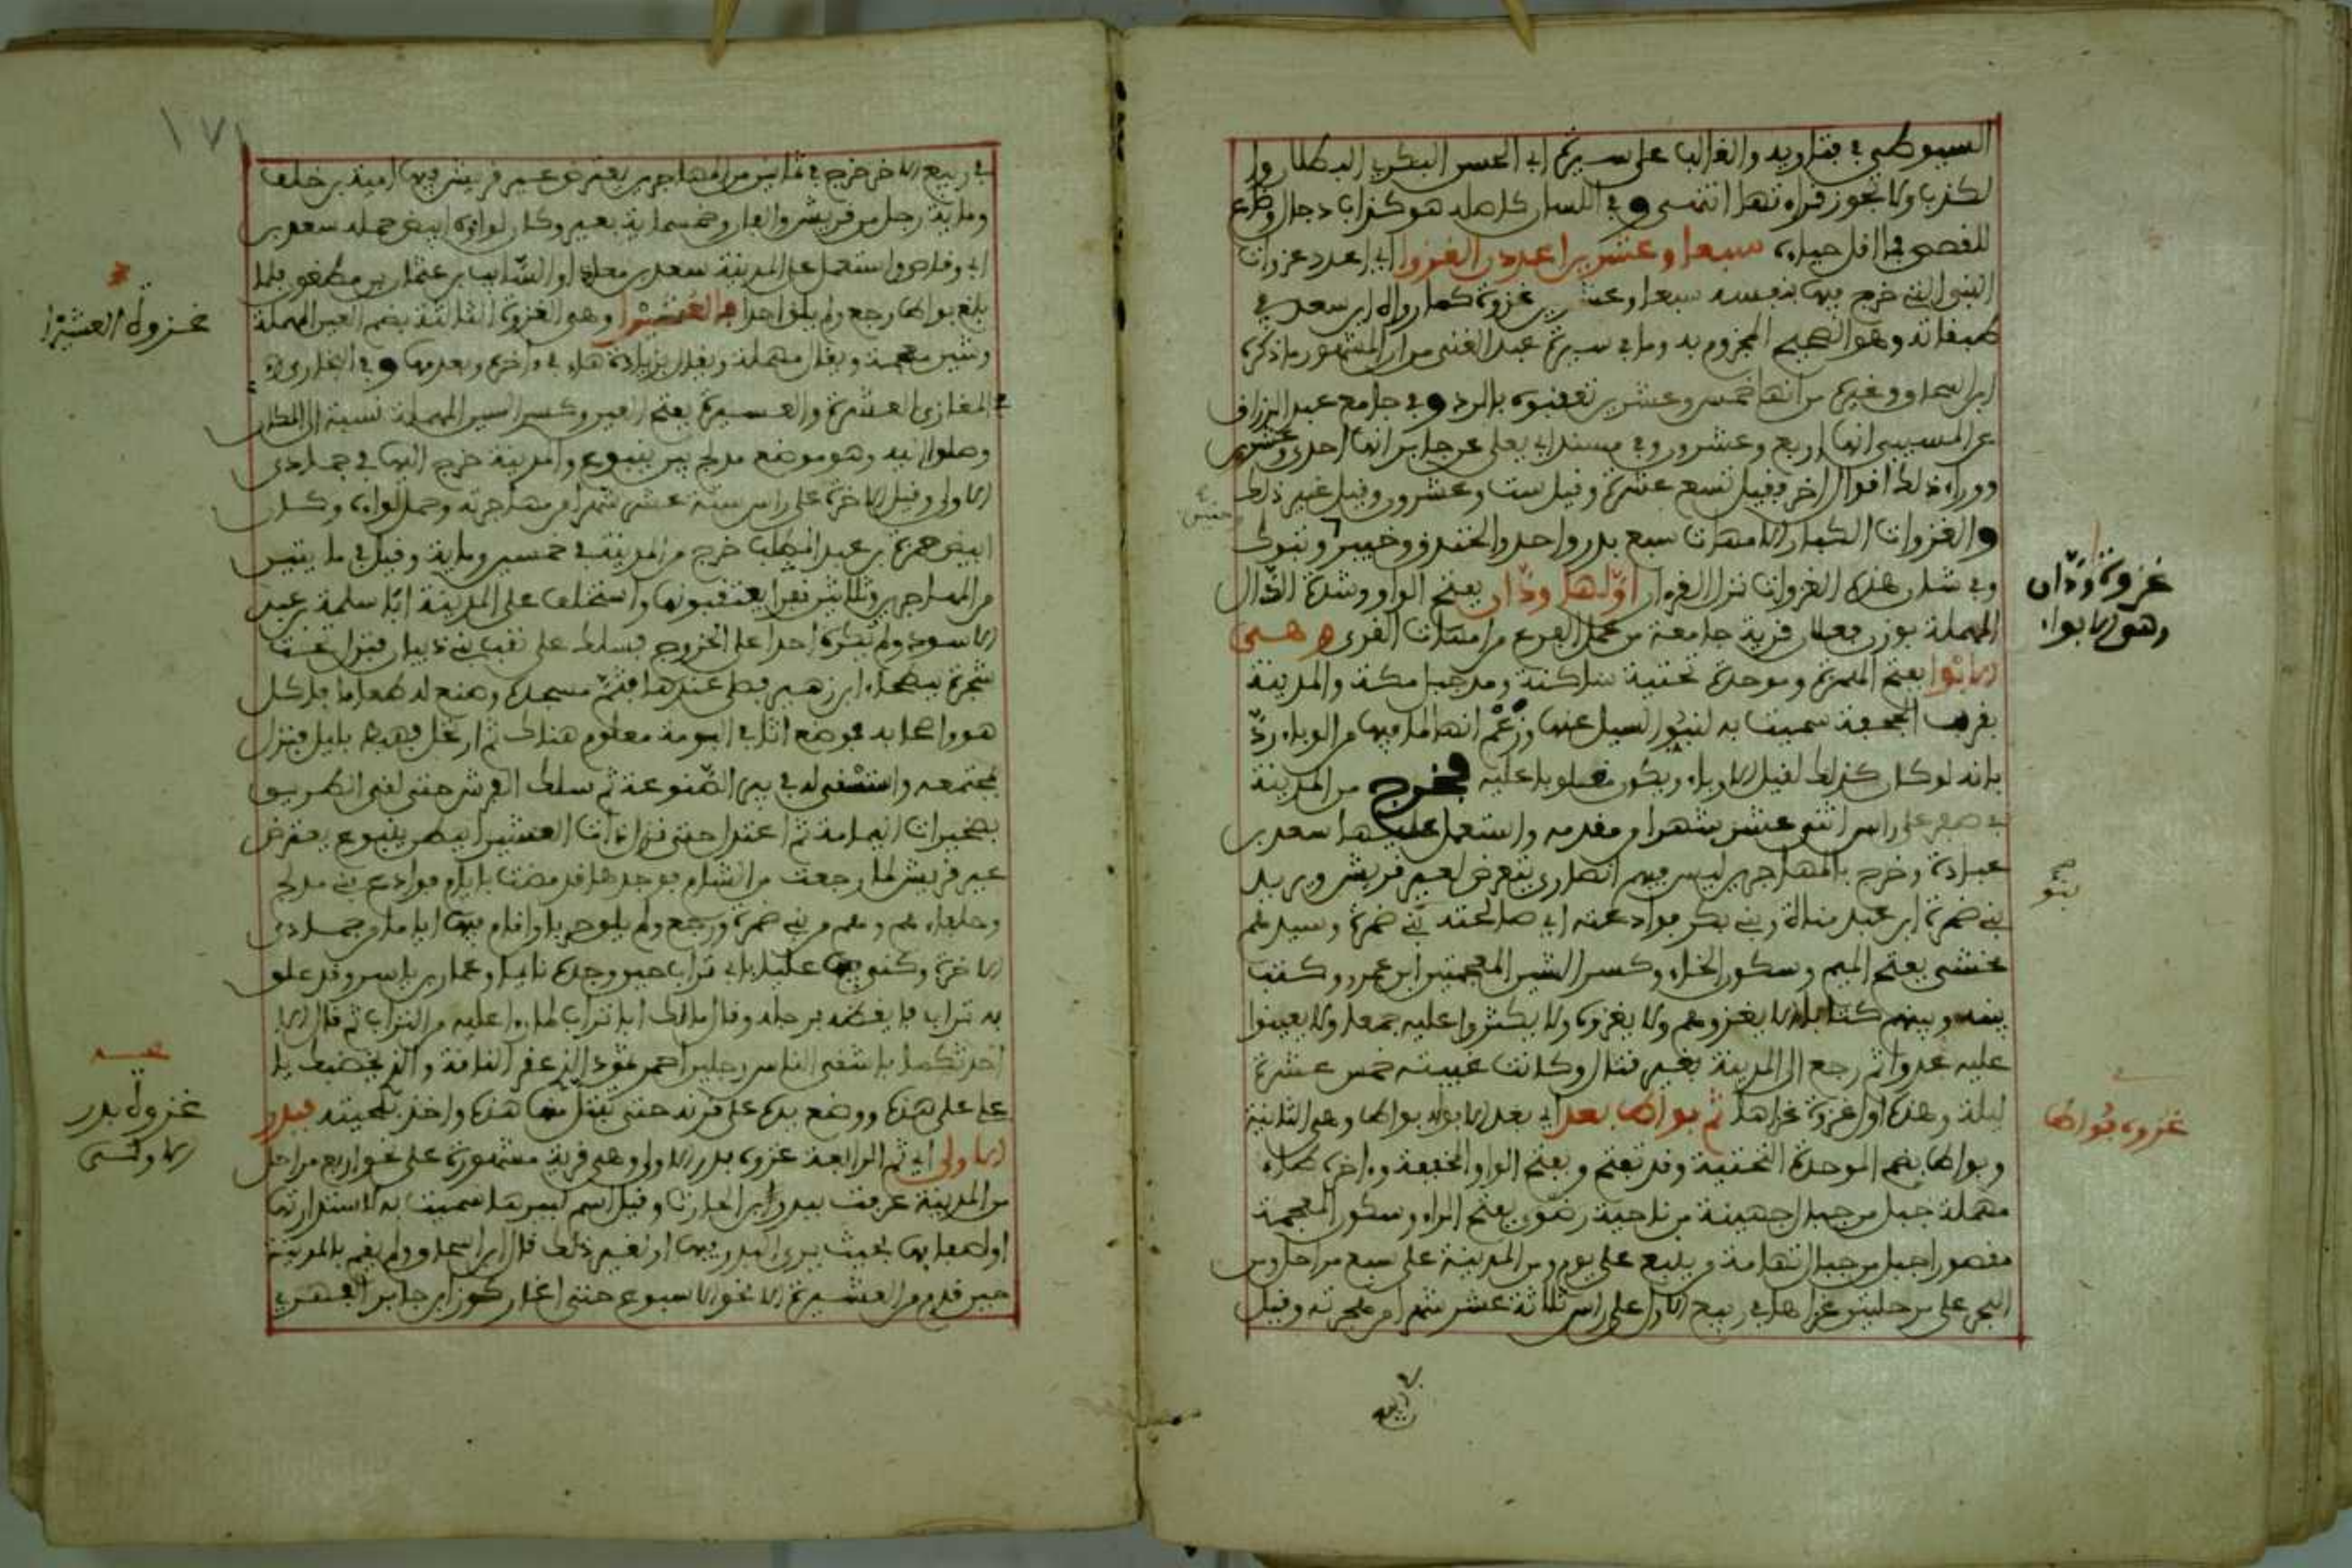 السيوطي في فتاويه والغالب على سيرة ابي الحسن البكري البطلان وا
لكذب ولا تجوز قراءتها انتهى وفي اللسان كاصله هو كذاب دجال وضاع
للقصص فما اقل حياءه سبعا وعشرين اعدد ن الغزوا اي اعدد غزوات
النبي التي خرج فيها بنفسه سبعا وعشرين غزوة كما رواه ابن سعد في
طبقاته وهو الصحيح المجزوم به وما في سيرة عبد الغني من ان المشهور ما ذكره
ابن اسحاق وغيره من انها خمس وعشرين تعقبوه بالرد وفي جامع عبد الرزاق
عن المسيب انها اربع وعشرون وفي مسند ابي يعلى عن جابر انها احدى وعشرين
ووراء ذلك اقوال اخر فقيل تسع عشرة وقيل ست وعشرون وقيل غير ذلك
والغزوات الكبار الامهات سبع بدر واحد والخندق وخيبر وتبوك
وفي شان هذه الغزوات نزل القرءان اولها ودان بفتح الواو وشدة الدال
المهملة بوزن فعلان قرية جامعة من عمل الفرع من امهات القرى وهي
الابوا بفتح الهمزة وموحدة تحتية ساكنة ومد جبل مكة والمدينة
بقرب الجحفة سميت به لتبوء السيل عنها وزعم انها لما فيها من الوباء رد
بانه لو كان كذلك لقيل الاوباء ويكون مقلوبا عليه فخرج من المدينة
في صفر على راس اثني عشر شهرا من مقدمه واستعمل عليها سعد بن
عبادة وخرج بالمهاجرين ليس فيهم انصاري يتعرض لعير قريش ويريد
بني ضمرة ابن عبد مناة وبني بكر فوادعته اي صالحته بني ضمرة وسيدهم
مخشي بفتح الميم وسكون الخاء وكسر الشين المعجمتين ابن عمرو وكتب
بينه وبينهم كتابا ان لا يغزوهم ولا يغزوه ولا يكثروا عليه جمعا ولا يعينوا
عليه عدوا ثم رجع الى المدينة بغير قتال وكانت غيبته خمس عشرة
ليلة وهذه اول غزوة غزاها ثم بواط بعد اي بعد الابواء بواط وهي الثانية
وبواط بضم الموحدة التحتية وقد تفتح وبفتح الواو الخفيفة وءاخره طاء
مهملة جبل من جبال جهينة من ناحية رضوى بفتح الراء وسكون المعجمة
مقصور اجبل من جبال تهامة وينبع على يوم ومن المدينة على سبع مراحل ومن
البحر على مرحلتين غزاها في ربيع الاول على راس ثلاثة عشر شهرا من هجرته وقيل
غزوة ودان
وهي الابواء
بنو
غزوة بواط
١٧١
في ربيع الاخر خرج في مائتين من المهاجرين يعترض عير قريش فيها امية بن خلف
وماية رجل من قريش والفان وخمسماية بعير وكان لواؤه ابيض حمله سعد بن
ابي وقاص واستعمل على المدينة سعد بن معاذ او السائب بن عثمان بن مظعون فلما
بلغ بواط رجع ولم يلق احدا فالعشيرا وهي الغزوة الثالثة بضم العين المهملة
وشين معجمة ويقال مهملة ويقال بزيادة هاء في ءاخره وبعد منها وفي البخاري
في المغازي العشيرة والعسيرة بفتح العين وكسر السين المهملة نسبة الى المكان
وصلوا اليه وهو موضع مدلج بين ينبع والمدينة خرج اليها في جمادى
الاولى وقيل الاخرة على راس ستة عشر شهرا من مهاجرته وحمل لواءه وكان
ابيض حمزة بن عبد المطلب خرج من المدينة في خمسين وماية وقيل في مايتين
من المهاجرين وثلاثين نفرا يعتقبونها واستخلف على المدينة ابا سلمة بن عبد
الاسود ولم يكره احدا على الخروج فسلك على نقب بني ذبيان فنزل تحت
شجرة ببطحاء ابن ازهر فصلى عندها فثم مسجده وصنع له طعاما فاكل
هو واصحابه فموضع اثافي البرمة معلوم هناك ثم ارتحل فهبط بليل فنزل
بمجتمعه واستسقى له في بير الضبوعة ثم سلك الفرش حتى لقي الطريق
بصخيرات اليمامة ثم اعتدل حتى نزل ذات العشيرا ببطن ينبوع يعترض
عير قريش لما رجعت من الشام فوجدها قد مضت بايام فوادع بني مدلج
وحلفاءهم ومعهم بني ضمرة ورجع ولم يلق حربا واقام فيها اياما من جمادى
الاخرة وكنى فيها عليا بابي تراب حين وجده نائما وعمار بن ياسر وقد علق
به تراب فايقظه برجله وقال مالك ابا تراب لما راى عليه من التراب ثم قال الا
احدثكما باشقى الناس رجلين احمر ثمود الذي عقر الناقة والذي يخضبك يا
علي على هذه ووضع يده على قرنه حتى يبتل منها هذه واخذ بلحيته فبدر
الاولى اي ثم الرابعة غزوة بدر الاولى وهي قرية مشهورة على نحو اربع مراحل
من المدينة عرفت ببدر ابن الحارث وقيل اسم لبير ها سميت به لاستدارتها
او لصفائها بحيث يرى البدر فيها او لغير ذلك قال ابن اسحاق ولم يقم بالمدينة
حين قدم من العشيرة الا نحو الاسبوع حتى اغار كرز ابن جابر الفهري
غزوة العشيرا
غزوة بدر
الاولى